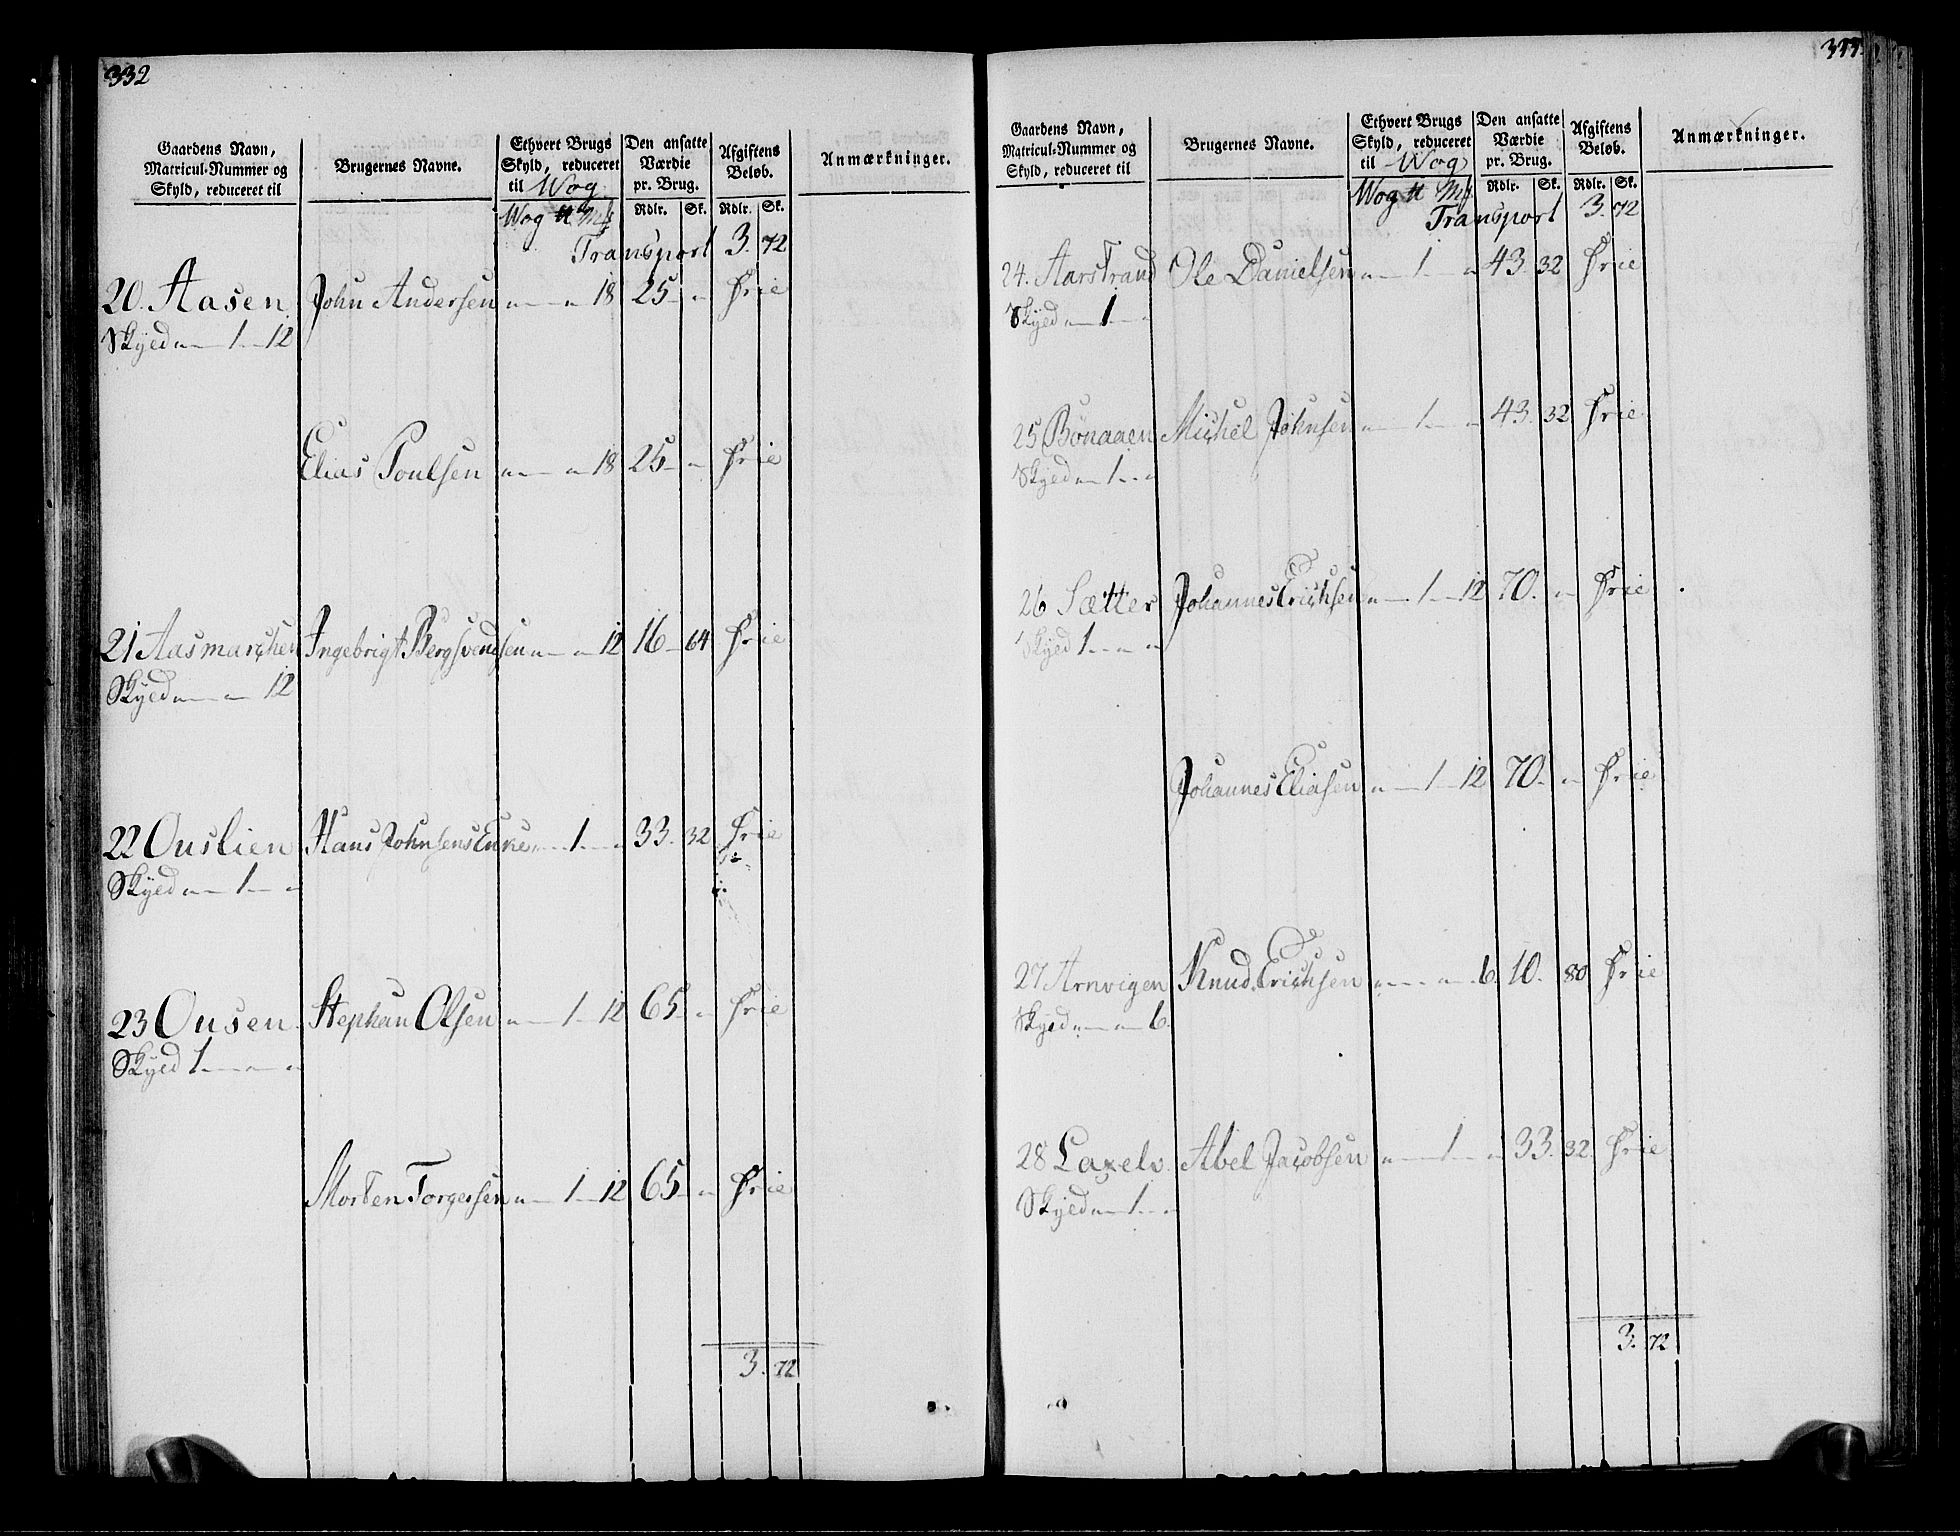 332
Gaardens Navn, Matricul-Nummer og Skyld, reduceret til
Brugernes Navne.
Ethvert Brugs Skyld, reduceret til Wog
Den ansatte Værdie pr. Brug.
Afgiftens Beløb.
Anmærkninger.
Wog ℔ Mk
Rdlr. Sk. Rdlr. Sk.
Transport 3. 72
20. Aasen John Andersen „ — „ 18 25 — „ Frie
Skyld „ — 1 — 12
Elias Poulsen „ — „ 18 25 — „ Frie
21 Aasmarchen Ingebrigt Bergsvendsen „ — „ 12 16 — 64 Frie
Skyld „ — „ — 12
22 Ouslien Hans Johnsens Enke „ — 1 — „ 33. 32 Frie
Skyld „ — 1 — „
23 Ousen Stephan Olsen „ — 1 — 12 65 — „ Frie
Skyld 1 — „ — „
Morten Torgersen „ — 1 — 12 65 — „ Frie
3. 72
Gaardens Navn, Matricul-Nummer og Skyld, reduceret til
Brugernes Navne.
Ethvert Brugs Skyld, reduceret til Wog
Den ansatte Værdie pr. Brug.
Afgiftens Beløb.
Anmærkninger.
Wog ℔ Mk
Rdlr. Sk. Rdlr. Sk.
Transport 3. 72
24. Aarstrand Ole Danielsen „ — 1 — „ 43. 32 Frie
Skyld „ — 1 — „
25 Bönaaen Michel Johnsen „ — 1 — „ 43. 32 Frie
Skyld „ — 1 — „
26 Sætter Johannes Erichsen „ — 1 — 12 70. „ Frie
Skyld 1 — „ — „
Johannes Eliasen „ — 1 — 12 70. „ Frie
27 Arnvigen Knud Erichsen „ — „ 6. 10. 80 Frie
Skyld „ — „ — 6.
28 Laxelv. Abel Jacobsen „ — 1 — „ 33. 32. Frie
Skyld „ — 1 — „
3. 72